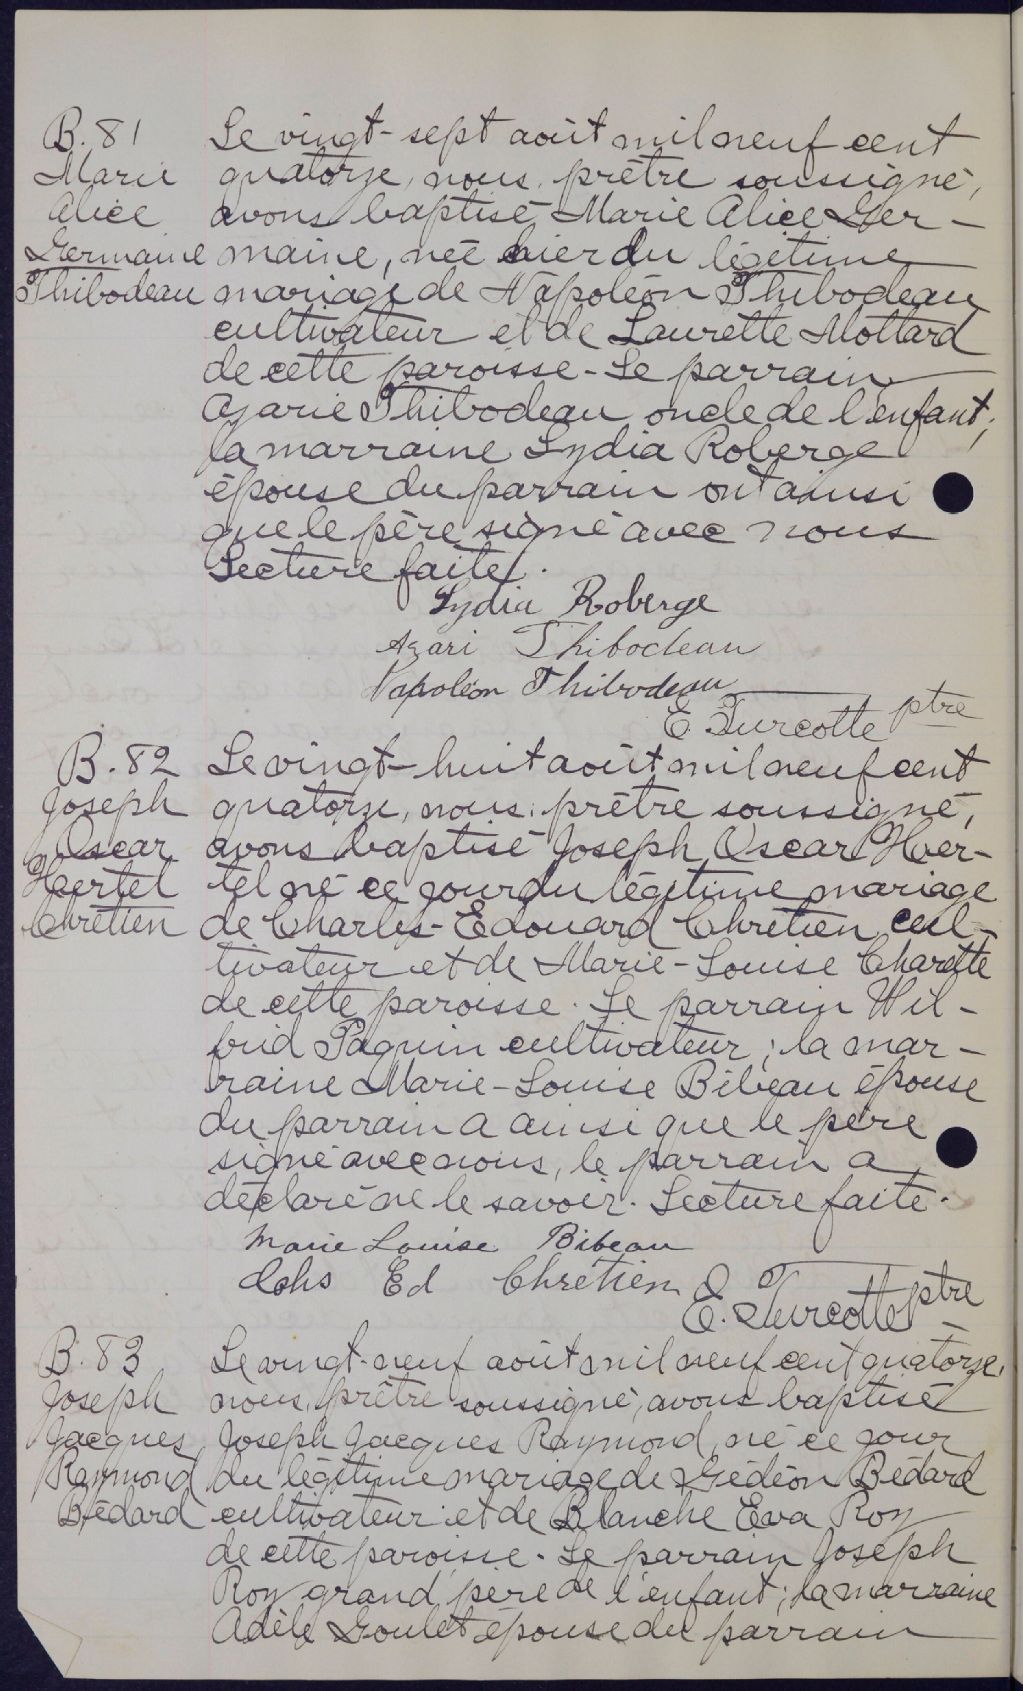 B. 81
Marie
Alice
Germaine
Thibodeau
Le vingt-sept août mil neuf cent
quatorze, nous, prêtre soussigné,
avons baptisé Marie Alice Ger-
maine, née hier du légitime
mariage de Napoléon Thibodeau
cultivateur et de Laurette Mottard
de cette paroisse - Le parrain
Azarie Thibodeau oncle de l'enfant;
la marraine Lydia Roberge
épouse du parrain ont ainsi
que le père signé avec nous
Lecture faite.
Lydia Roberge
Azari Thibodeau
Napoléon Thibodeau
E. Turcotte ptre
B. 82
Joseph
Oscar
Haertel
Chrétien
Le vingt-huit août mil neuf cent
quatorze, nous, prêtre soussigné,
avons baptisé Joseph Oscar Haer-
tel né ce jour du légitime mariage
de Charles-Edouard Chrétien cul-
tivateur et de Marie-Louise Charette
de cette paroisse. Le parrain Wil-
frid Paquin cultivateur; la mar-
raine Marie-Louise Bibeau épouse
du parrain a ainsi que le père
signé avec nous, le parrain a
déclaré ne le savoir. Lecture faite.
Marie Louise Bibeau
Ed Chrétien
E. Turcotte ptre
B. 83
Joseph
Jacques
Raymond
Bédard
Le vingt-neuf août mil neuf cent quatorze,
nous, prêtre soussigné, avons baptisé
Joseph Jacques Raymond, né ce jour
du légitime mariage de Gédéon Bédard
cultivateur et de Blanche Eva Roy
de cette paroisse. Le parrain Joseph
Roy grand père de l'enfant; la marraine
Adèle Goulet épouse du parrain